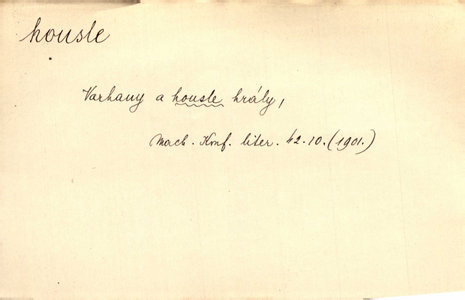 housle
Varhany a housle hrály,
Mach. Konf. liter. 42.10. (1901.)